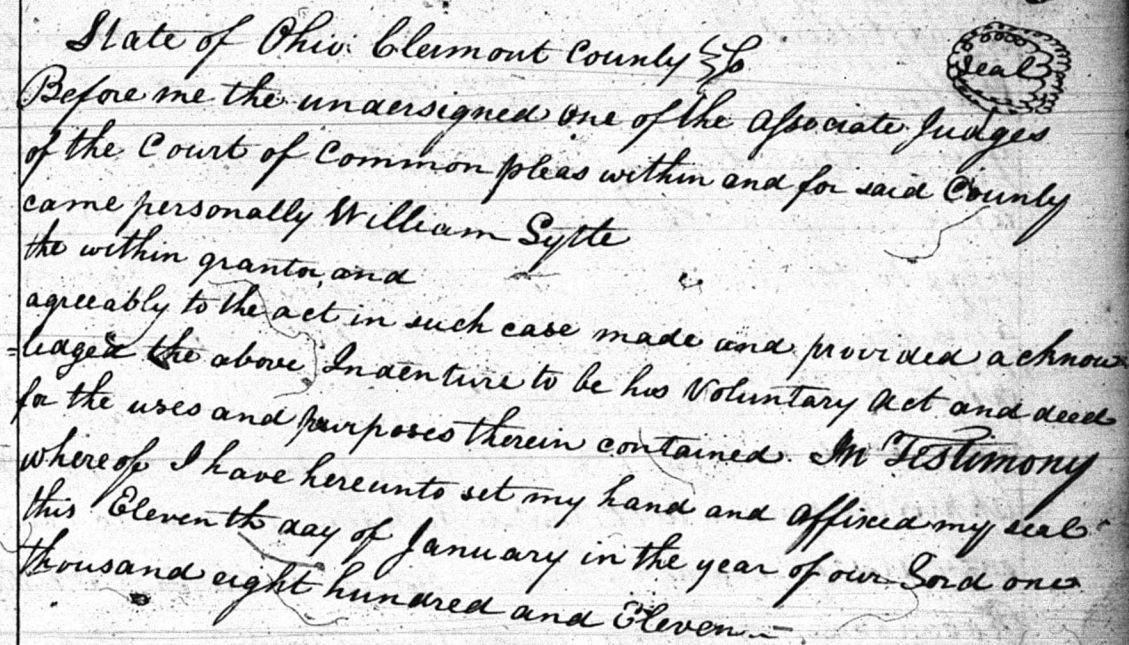 State of Ohio Clermont County Ss
Seal
Before me the undersigned one of the Associate Judges
of the Court of Common pleas within and for said County
came personally William Lytle
the within grantor and
agreeably to the act in such case made and provided acknow
=ledged the above Indenture to be his Voluntary Act and deed
for the uses and purposes therein contained. In Testimony
whereof I have hereunto set my hand and affixed my seal
this Eleventh day of January in the year of our Lord one
thousand eight hundred and Eleven.—